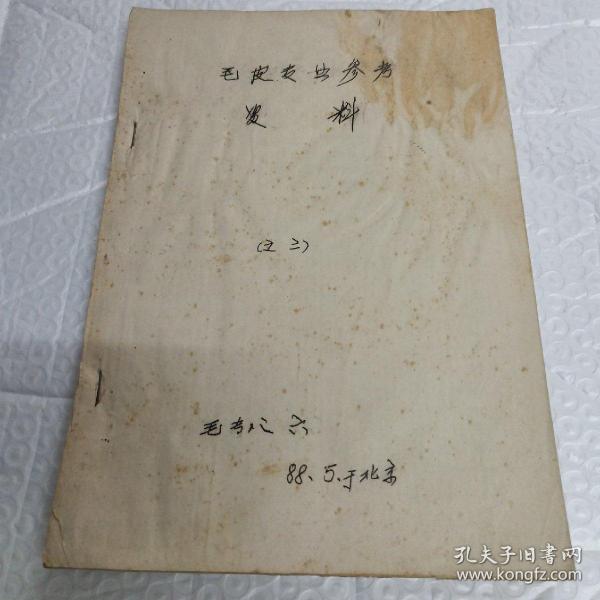 毛皮专业参考
资料
(之二)
毛专八六
88.5.于北京
孔夫子旧书网
www.kongfz.com